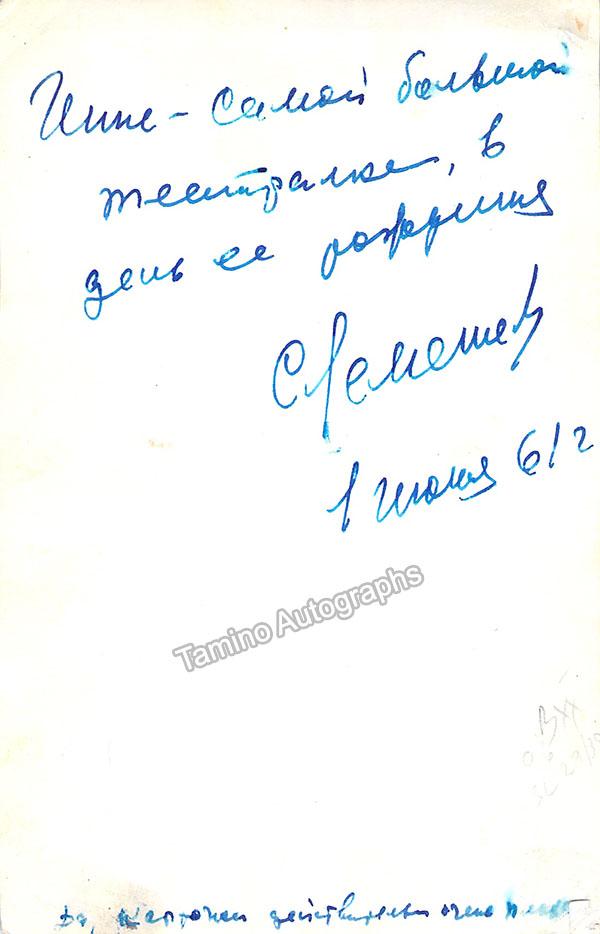 Инне - самой большой
театралке, в
день ее рождения
С Лемешев
1 июня 61 г
Tamino Autographs
Да, карточки действительно очень